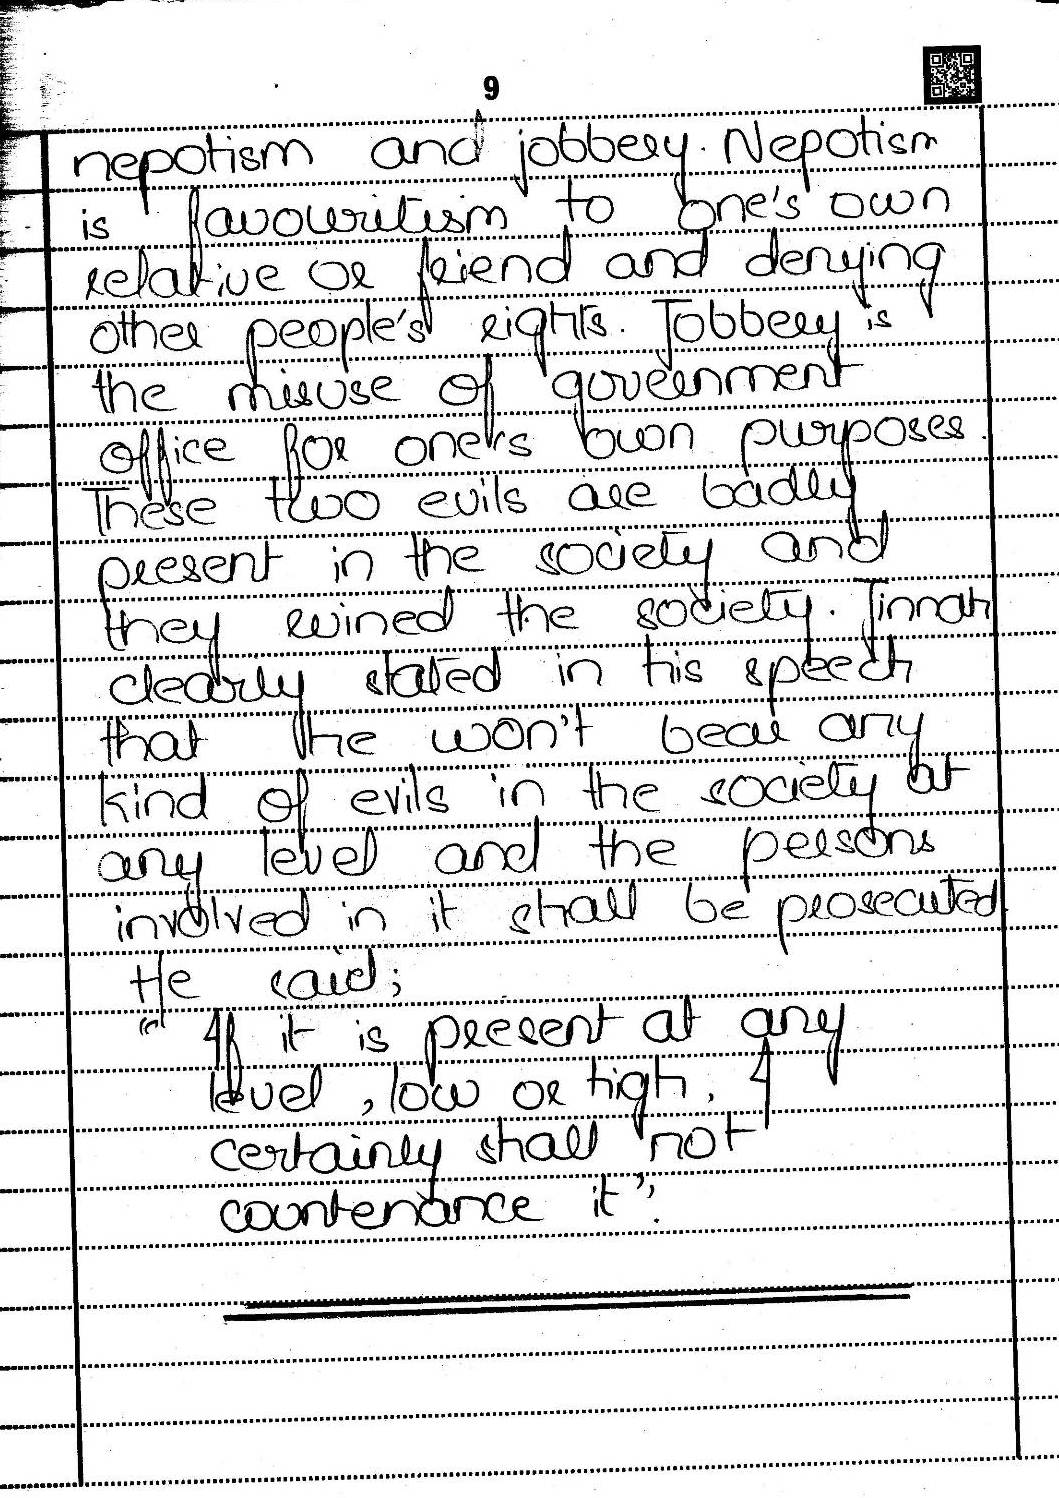 9
nepotism and jobbery. Nepotism
is favouritism to one's own
relative or friend and denying
other people's rights. Jobbery is
the misuse of government
office for one's own purposes.
These two evils are badly
present in the society and
they ruined the society. Jinnah
clearly stated in his speech
that he won't bear any
kind of evils in the society at
any level and the persons
involved in it shall be prosecuted
He said;
" If it is present at any
level, low or high, I
certainly shall not
countenance it".